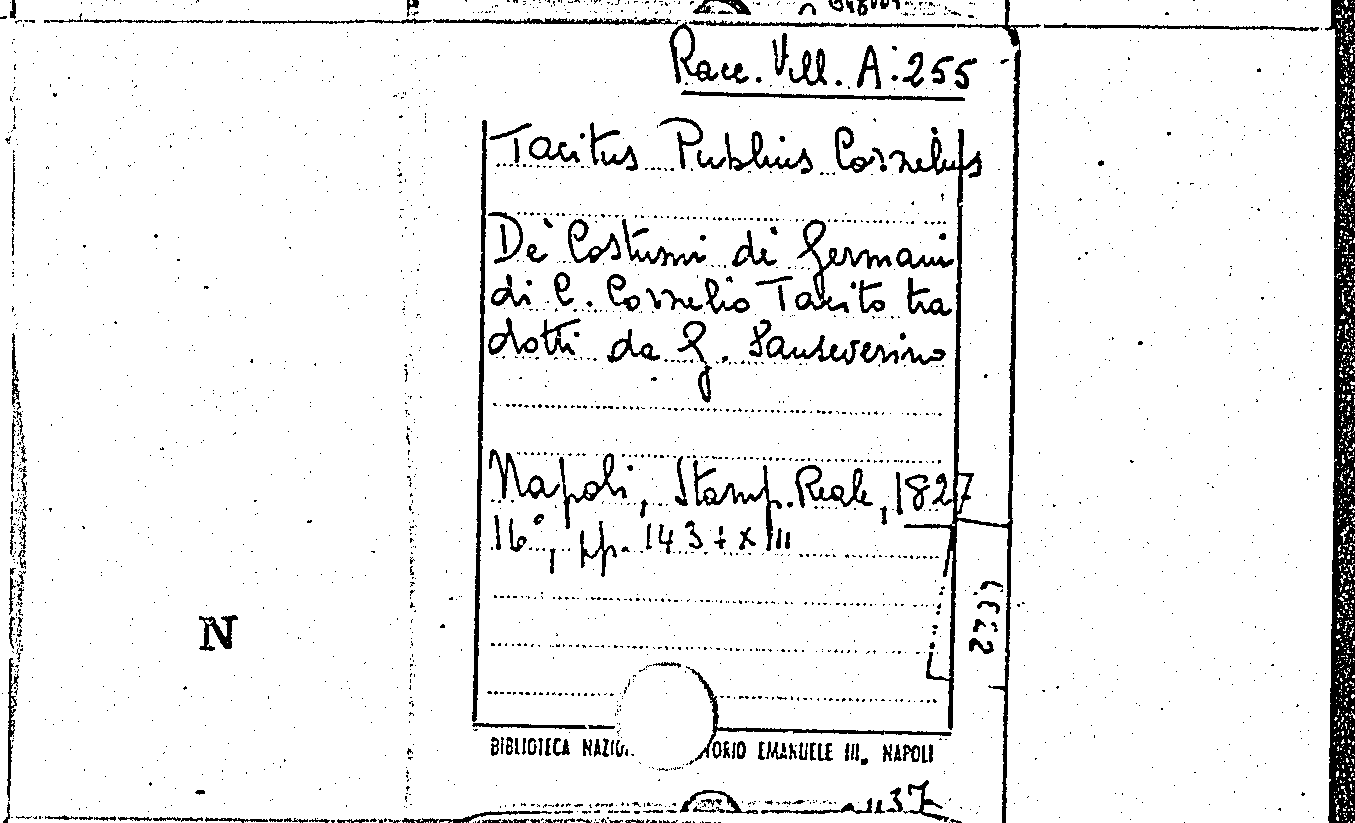 Racc. Vill. A:255
Tacitus Publius Cornelius
De' Costumi de' Germani
di C. Cornelio Tacito tra
dotti da G. Sanseverino
Napoli, Stamp. Reale, 1827
16°, pp. 143 + XIII
N
BIBLIOTECA NAZIO TORIO EMANUELE III. NAPOLI
37